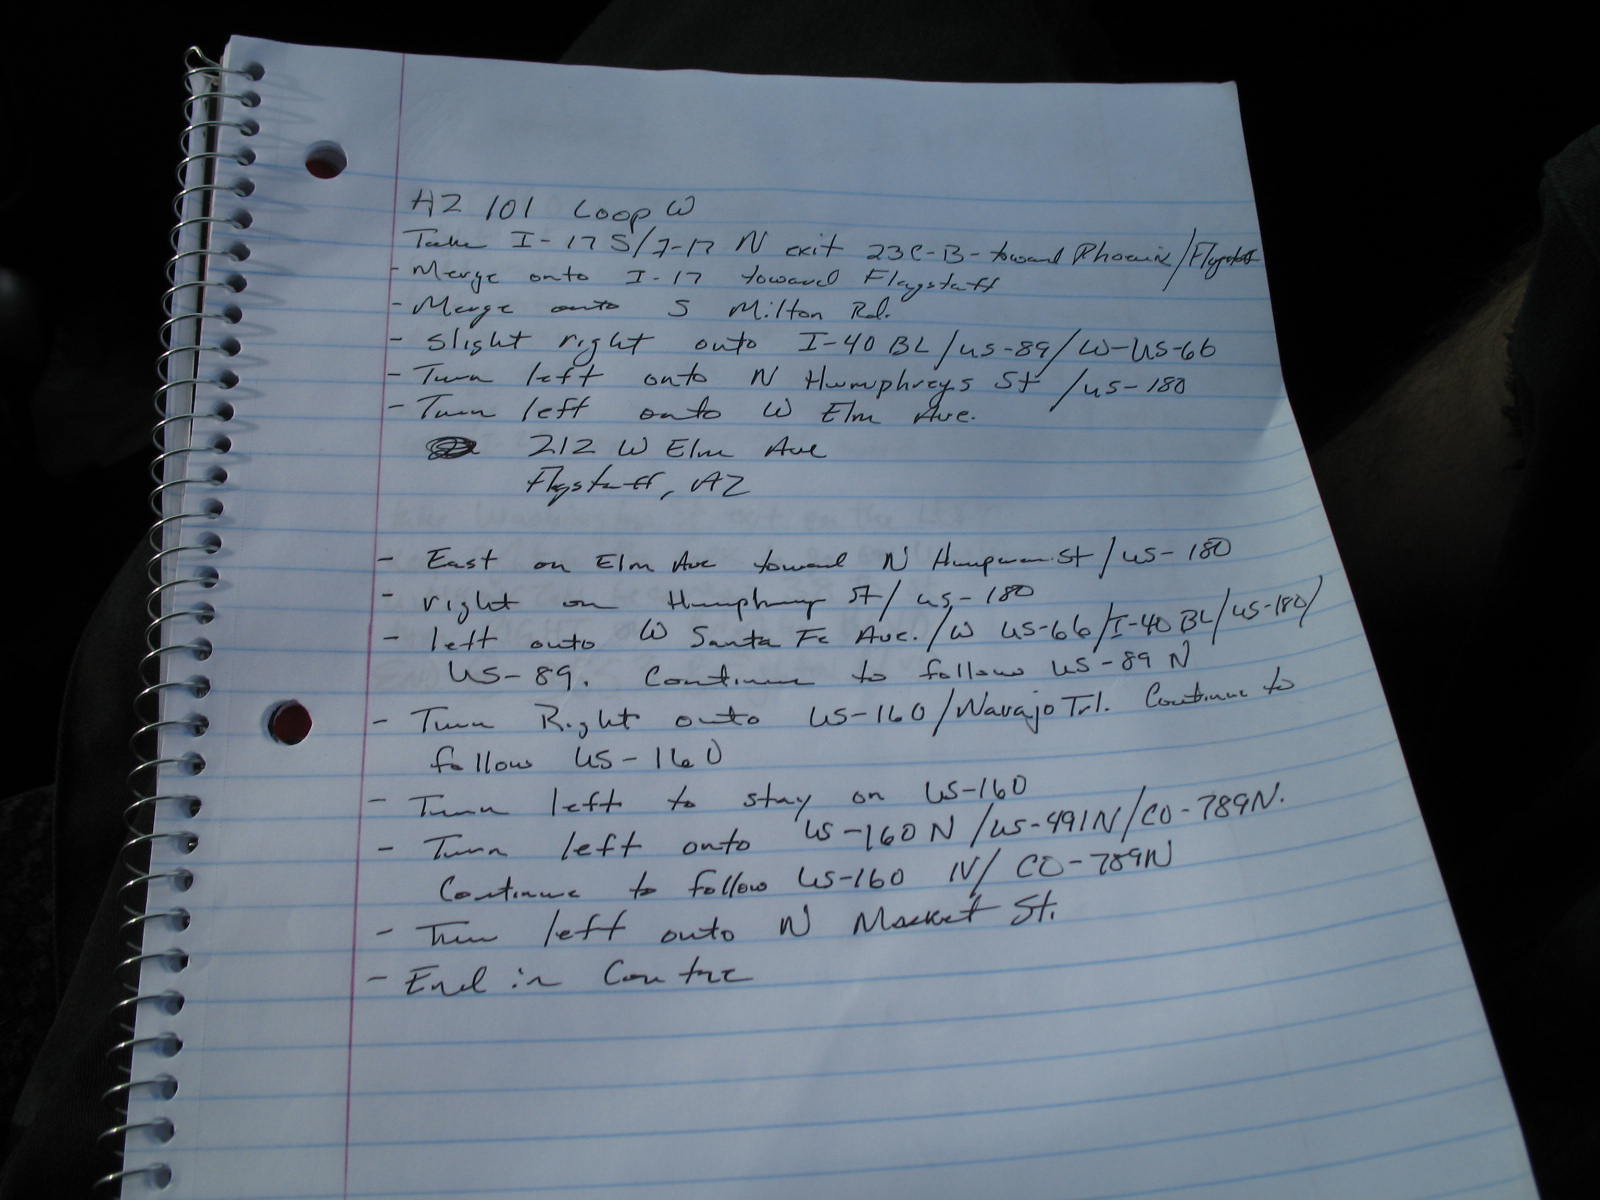 AZ 101 Loop W
Take I-17 S/I-17 N exit 23C-B- toward Phoenix/Flagstaff
- Merge onto I-17 toward Flagstaff
- Merge onto S Milton Rd.
- Slight right onto I-40 BL/US-89/W-US-66
- Turn left onto N Humphreys St /US-180
- Turn left onto W Elm Ave.
212 W Elm Ave
Flagstaff, AZ
- East on Elm Ave toward N St/US-180
- right on Humphrey St/US-180
- left onto W Santa Fe Ave./W US-66/I-40 BL/US-180/
US-89. Continue to follow US-89 N
- Turn Right onto US-160/Navajo Trl. Continue to
follow US-160
- Turn left to stay on US-160
- Turn left onto US-160N/US-491N/CO-789N.
Continue to follow US-160 N/ CO-789N
- Turn left onto N Market St.
- End in